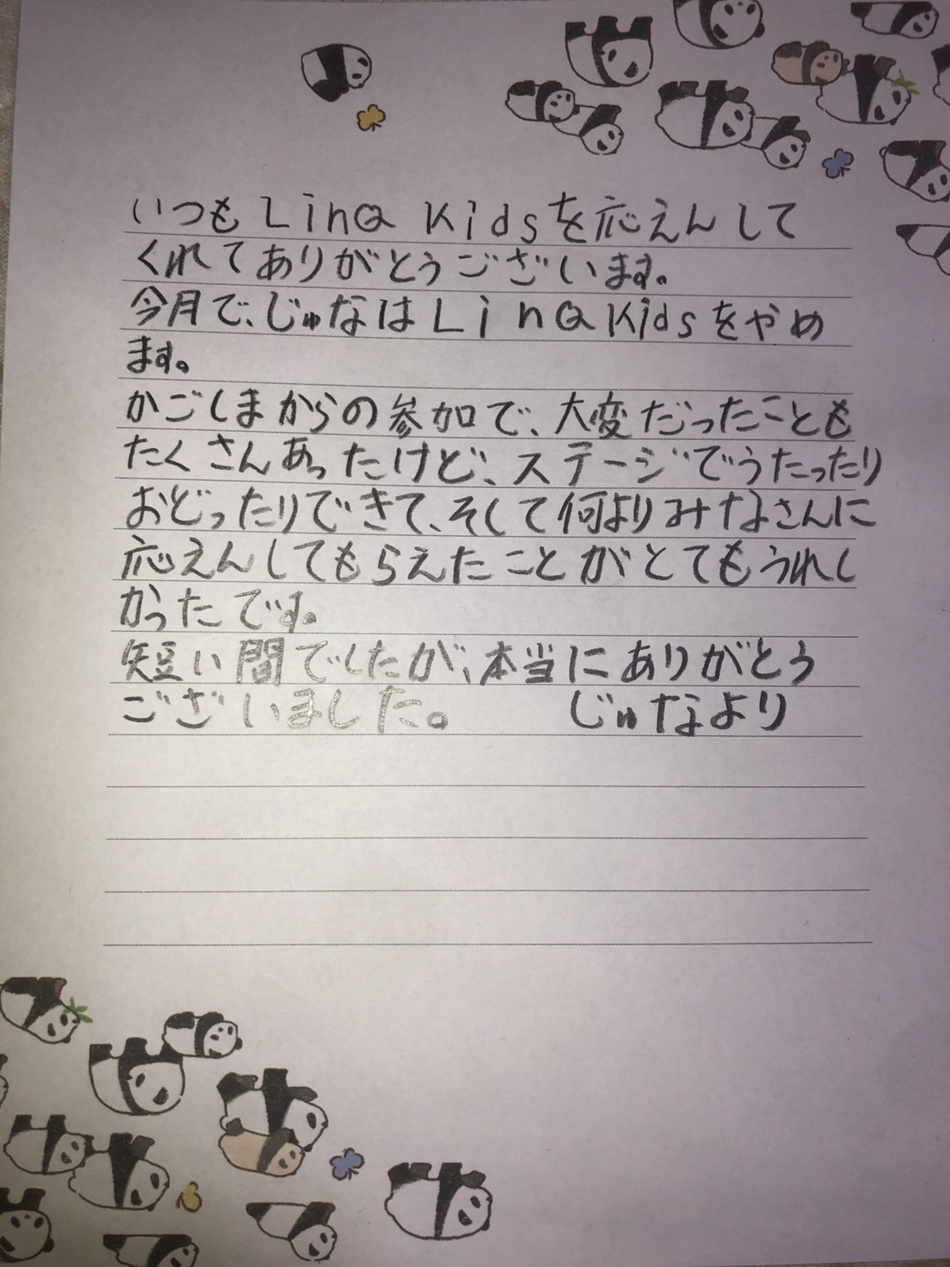 いつも LinQ Kidsを応えんして
くれてありがとうございます。
今月で、じゅなは LinQ Kidsをやめ
ます。
かごしまからの参加で、大変だったことも
たくさんあったけど、ステージでうたったり
おどったりできて、そして何よりみなさんに
応えんしてもらえたことがとてもうれし
かったです。
短い間でしたが、本当にありがとう
ございました。 じゅなより